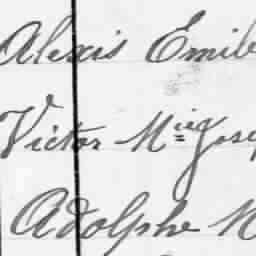 Alexis Emile
Victor Mie Josep
Adolphe M